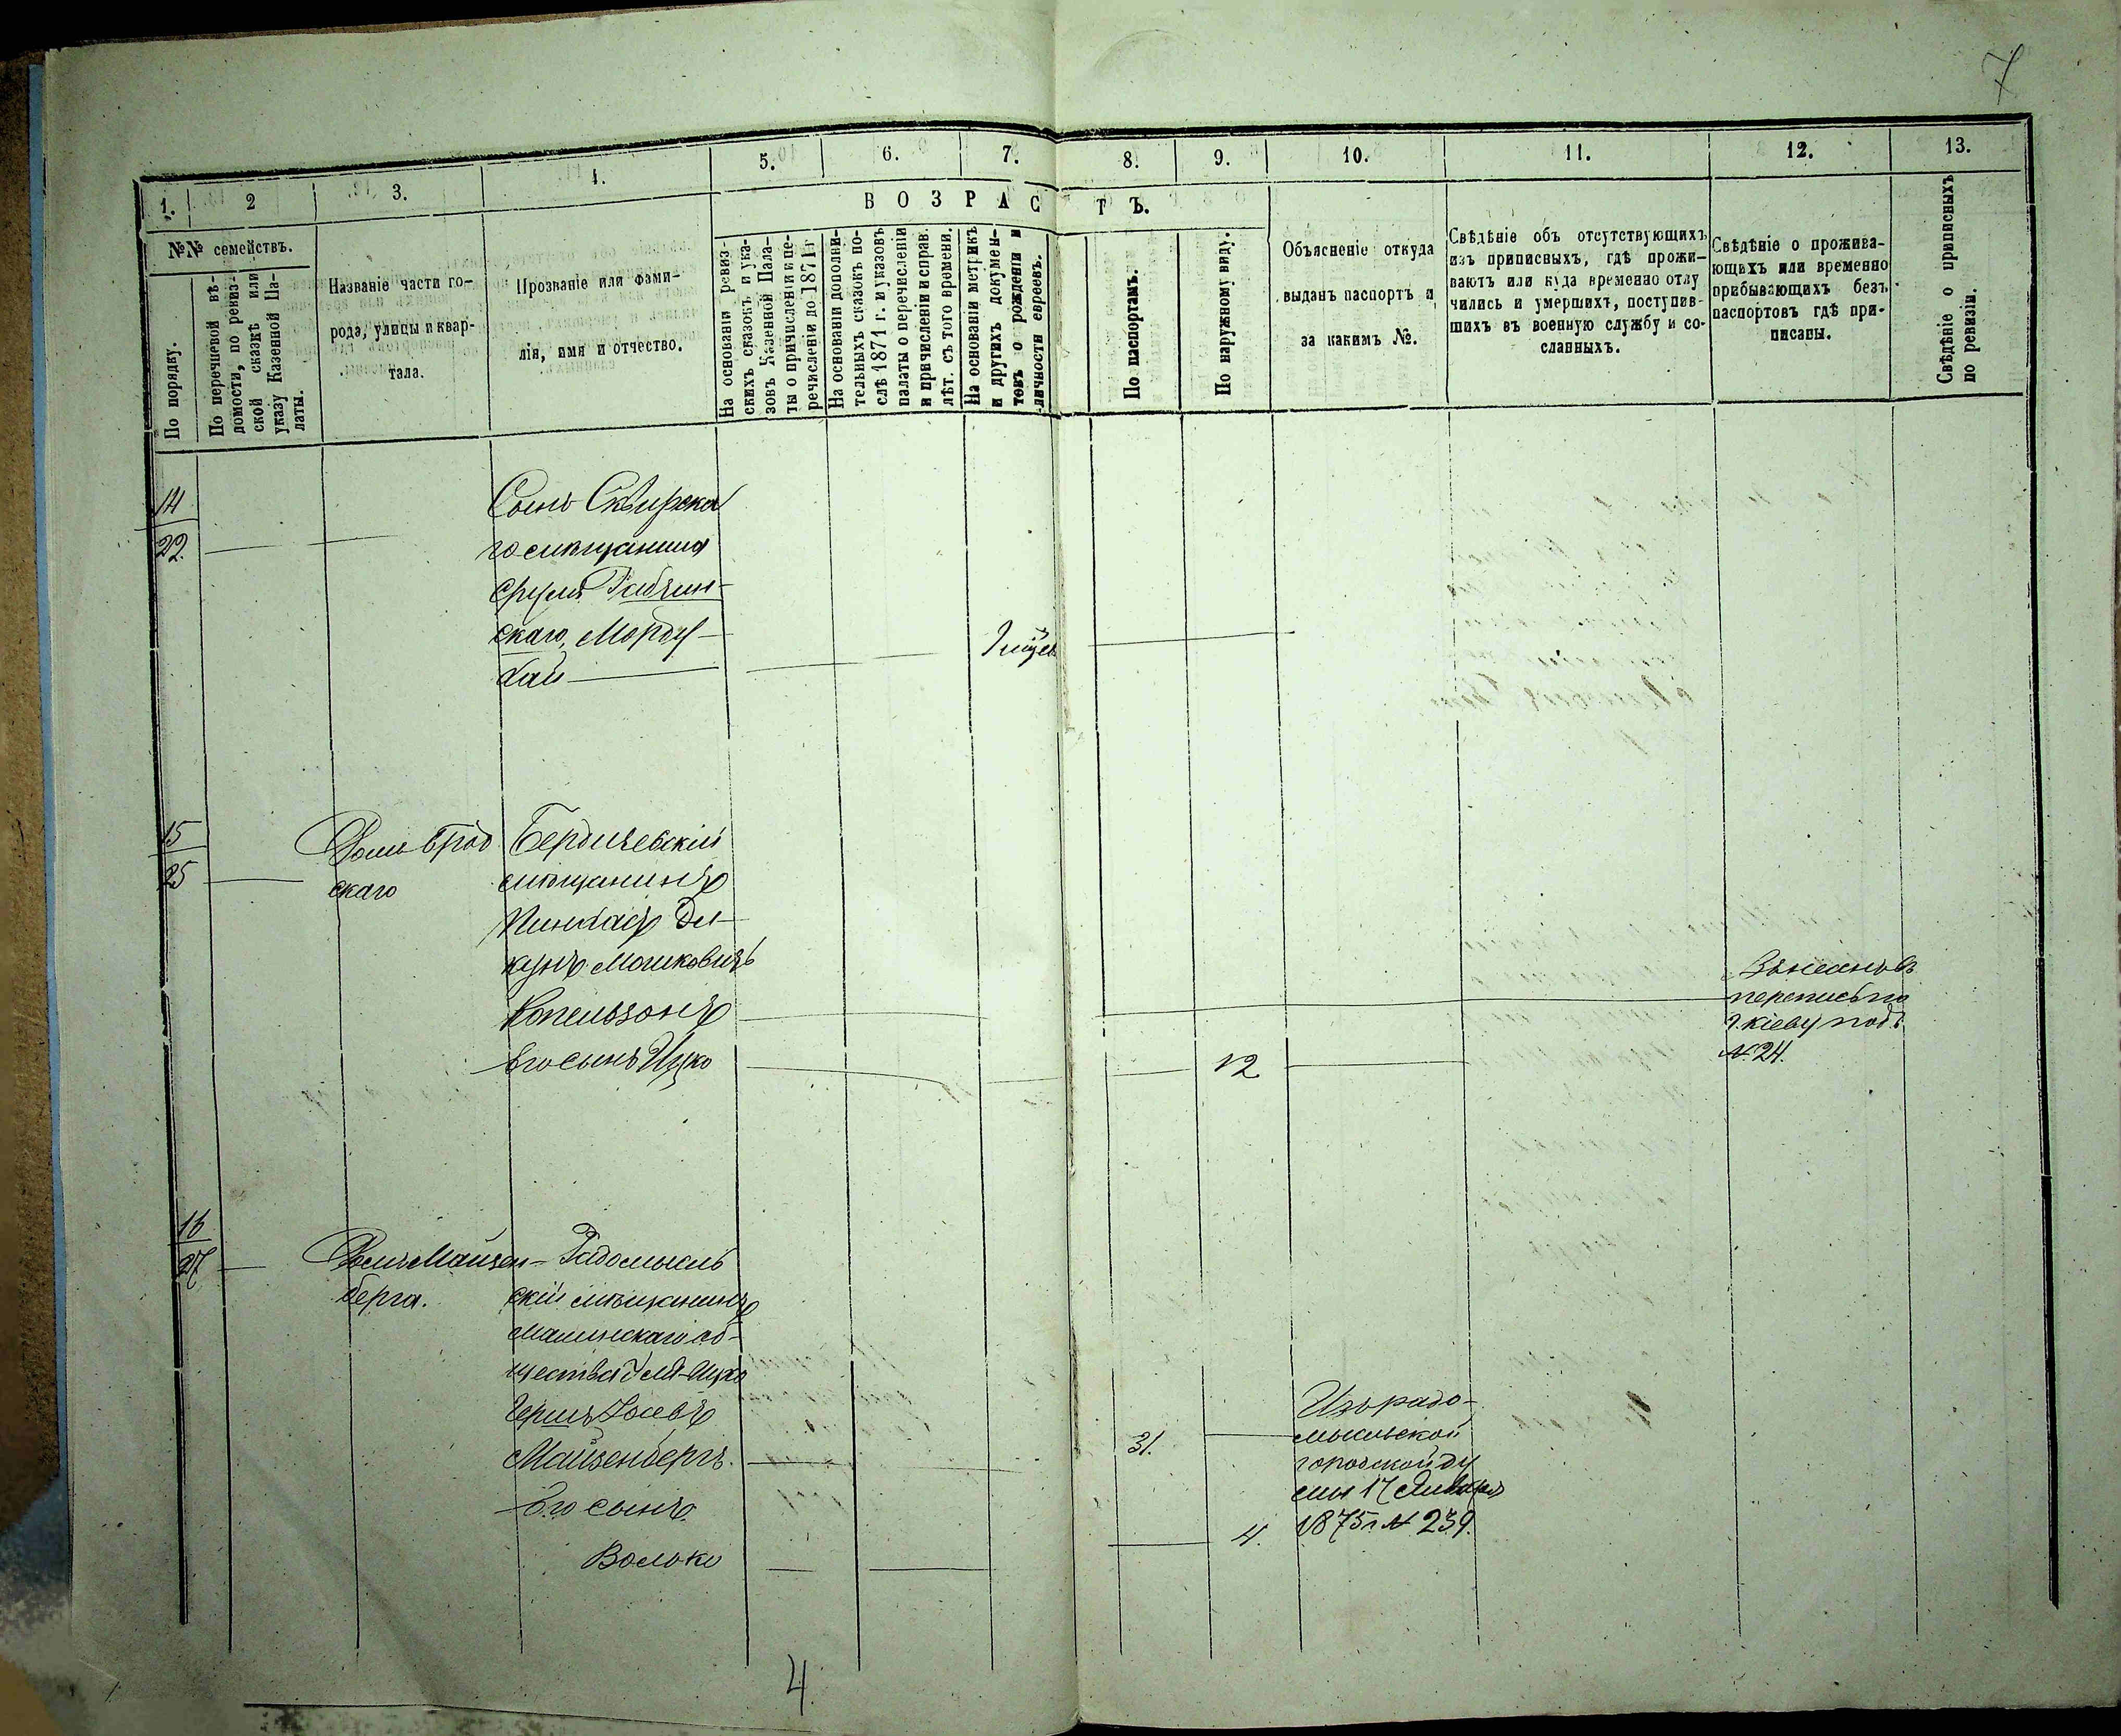 7
1. 2 3. 4. 5. 6. 7. 8. 9. 10. 11. 12. 13.
ВОЗРАСТЪ.
№№ семействъ.
По порядку.
По перечневой вѣ-
домости, по ревиз-
ской сказкѣ или
указу Казенной Па-
латы.
Названіе части го-
рода, улицы и квар-
тала.
Прозваніе или фами-
лія, имя и отчество.
На основаніи ревиз-
скихъ сказокъ и ука-
зовъ Казенной Пала-
ты о причисленіи и пе-
речисленіи до 1871 г.
На основаніи дополни-
тельныхъ сказокъ по-
слѣ 1871 г. и указовъ
палаты о перечисленіи
и причисленіи и справ.
лѣт. съ того времени.
На основаніи метрикъ
и другихъ докумен-
товъ о рожденіи и
личности евреевъ.
По паспортамъ.
По наружному виду.
Объясненіе откуда
выданъ паспортъ и
за какимъ №.
Свѣдѣніе объ отсутствующихъ
изъ приписныхъ, гдѣ прожи-
ваютъ или куда временно отлу
чились и умершихъ, поступив-
шихъ въ военную службу и со-
сланныхъ.
Свѣдѣніе о прожива-
ющихъ или временно
прибывающихъ безъ
паспортовъ гдѣ при-
писаны.
Свѣдѣніе о приписныхъ
по ревизіи.
14
22.
Сынъ Сквирска
го мѣщанина
Сруля Рабчин-
скаго, Морду-
хай
15
25
Домъ Брод
скаго
Бердичевскій
мѣщанинъ
Пинхасъ
Мошковичъ
Копельзонъ
Его сынъ Ицко
12
перепись по
г. Кіеву подъ
№ 24.
16
27
Домъ Майзен-
берга.
Радомысль
скій мѣщанинъ
Малинскаго об-
щества Ицко
Герш
Майзенбергъ.
Его сынъ
Волько
31.
4.
Изъ радо-
мысльской
городской ду
мы 17 Января
1875 г № 239.
4